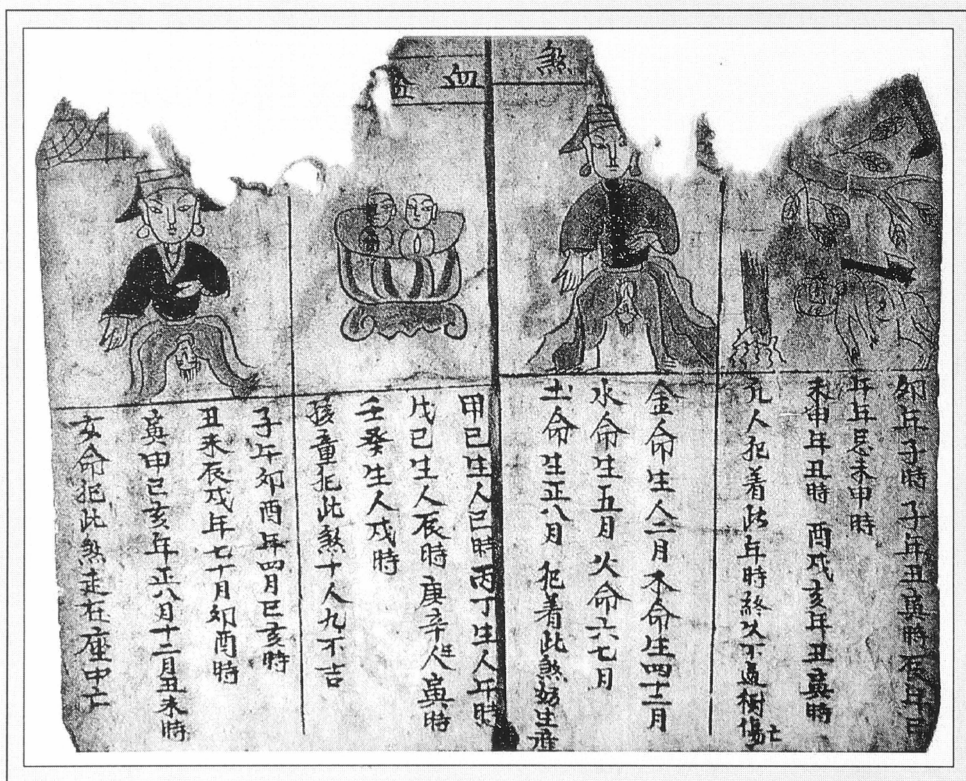 煞
血盆
卯年子時 子年丑寅時 辰年巳
年年忌未申時
未申年丑時 酉戌亥年丑寅時
凡人犯着此年時終久不過樹傷亡
金命生人二月木命生四十二月
水命生五月 火命六七月
土命生正八月 犯着此煞妨生産
甲己生人巳時 丙丁生人午時
戊己生人辰時 庚辛生人寅時
壬癸生人戌時
孩童犯此煞十人九不吉
子午卯酉年四月巳亥時
丑未辰戌年七十月卯酉時
寅申巳亥年正八月十二月丑未時
女命犯此煞走在座中亡